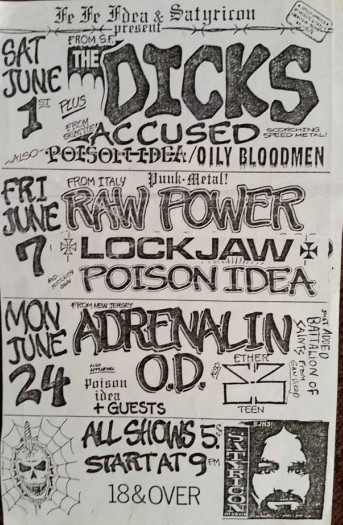 Fe Fe Fdea & Satyricon
present
SAT
JUNE
1ST
FROM S.F.
THE DICKS
PLUS
FROM SEATTLE!
ACCUSED
SCORCHING
SPEED METAL!
ALSO
POISON IDEA/OILY BLOODMEN
FRI
JUNE
7
FROM ITALY
Punk-Metal!
RAW POWER
LOCKJAW
POISON IDEA
MON
JUNE
24
FROM NEW JERSEY
ADRENALIN
O.D.
ALSO APPEARING
Poison
idea
+ GUESTS
ETHER
TEEN
JUST ADDED
BATTALION OF
SAINTS FROM
ALL SHOWS 5$.
START AT 9PM
18 & OVER
SATYRICON